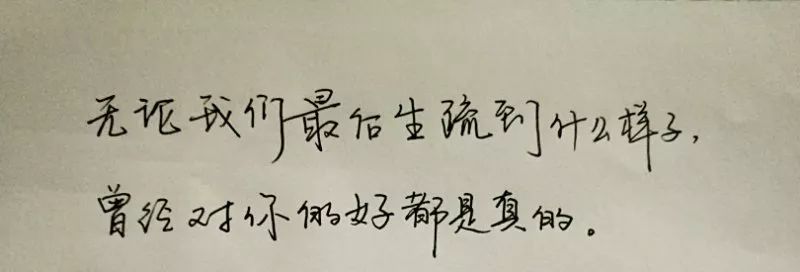 无论我们最后生疏到什么样子,
曾经对你的好都是真的。